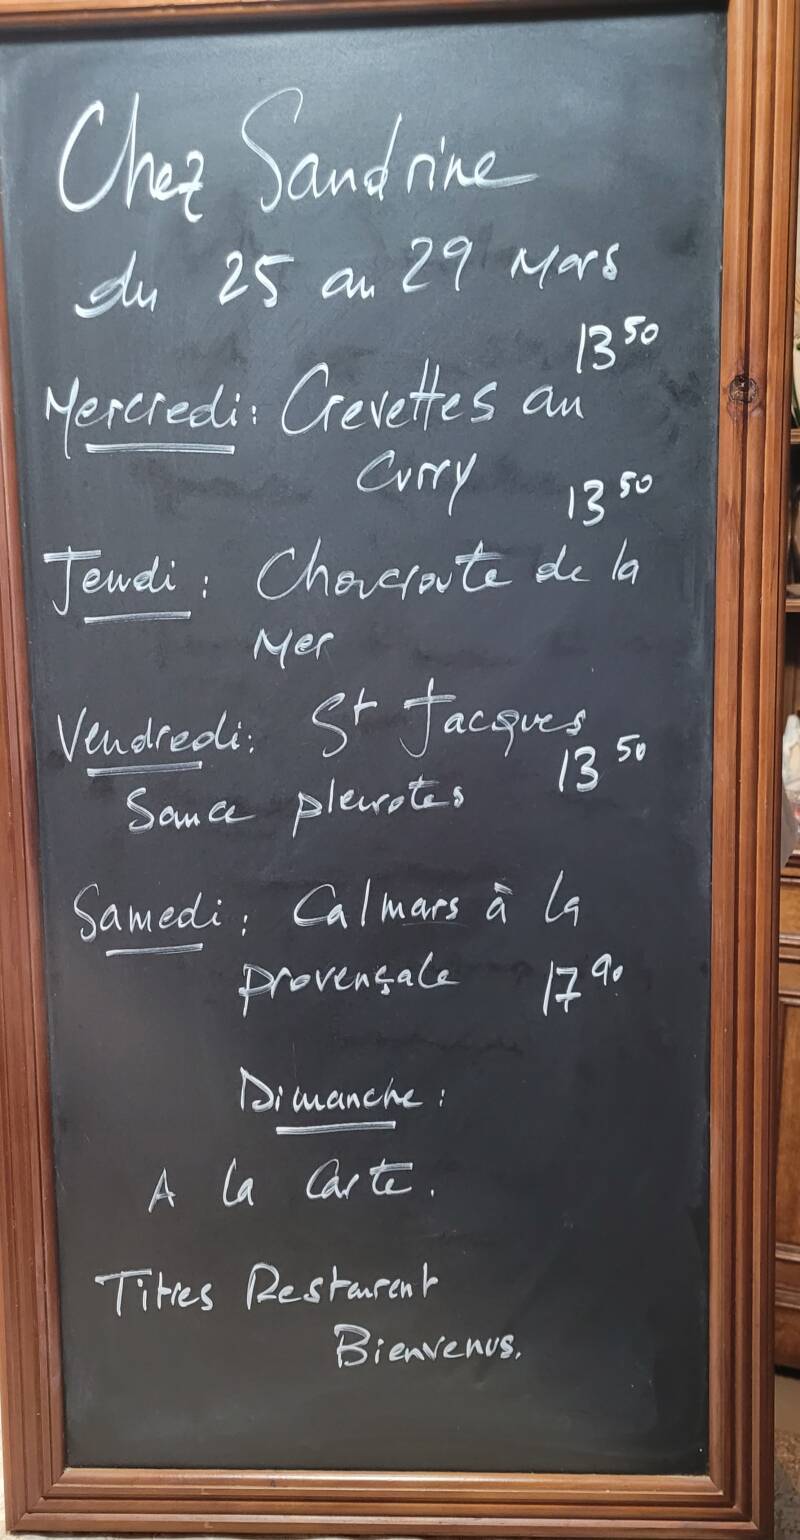 Chez Sandrine
du 25 au 29 Mars
13 50
Mercredi : Crevettes au
Curry
13 50
Jeudi : Choucroute de la
Mer
Vendredi : St Jacques
Sauce pleurotes 13 50
Samedi : Calmars à la
provençale 17 90
Dimanche :
A la Carte.
Titres Restaurent
Bienvenus.